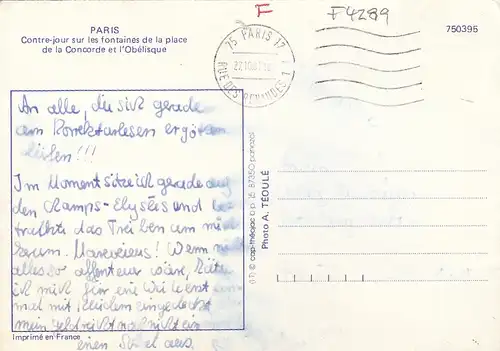 PARIS
Contre-jour sur les fontaines de la place
de la Concorde et l'Obélisque
F
F4289
750395
75 PARIS 17
RUE DES RENAUDES
An alle, die sich gerade
am Korrekturlesen ergötzen
!!!
Im Moment sitze ich gerade auf
den Champs-Elysées und be-
trachte das Treiben um mich
herum. Wenn
alles so wäre, hätte
ich mich für eine Weile erst
mal mit eingedeckt
mein nicht
einen aus.
Imprimé en France
(17) © cap-théojac 87350 panazol
Photo A. TÉOULÉ